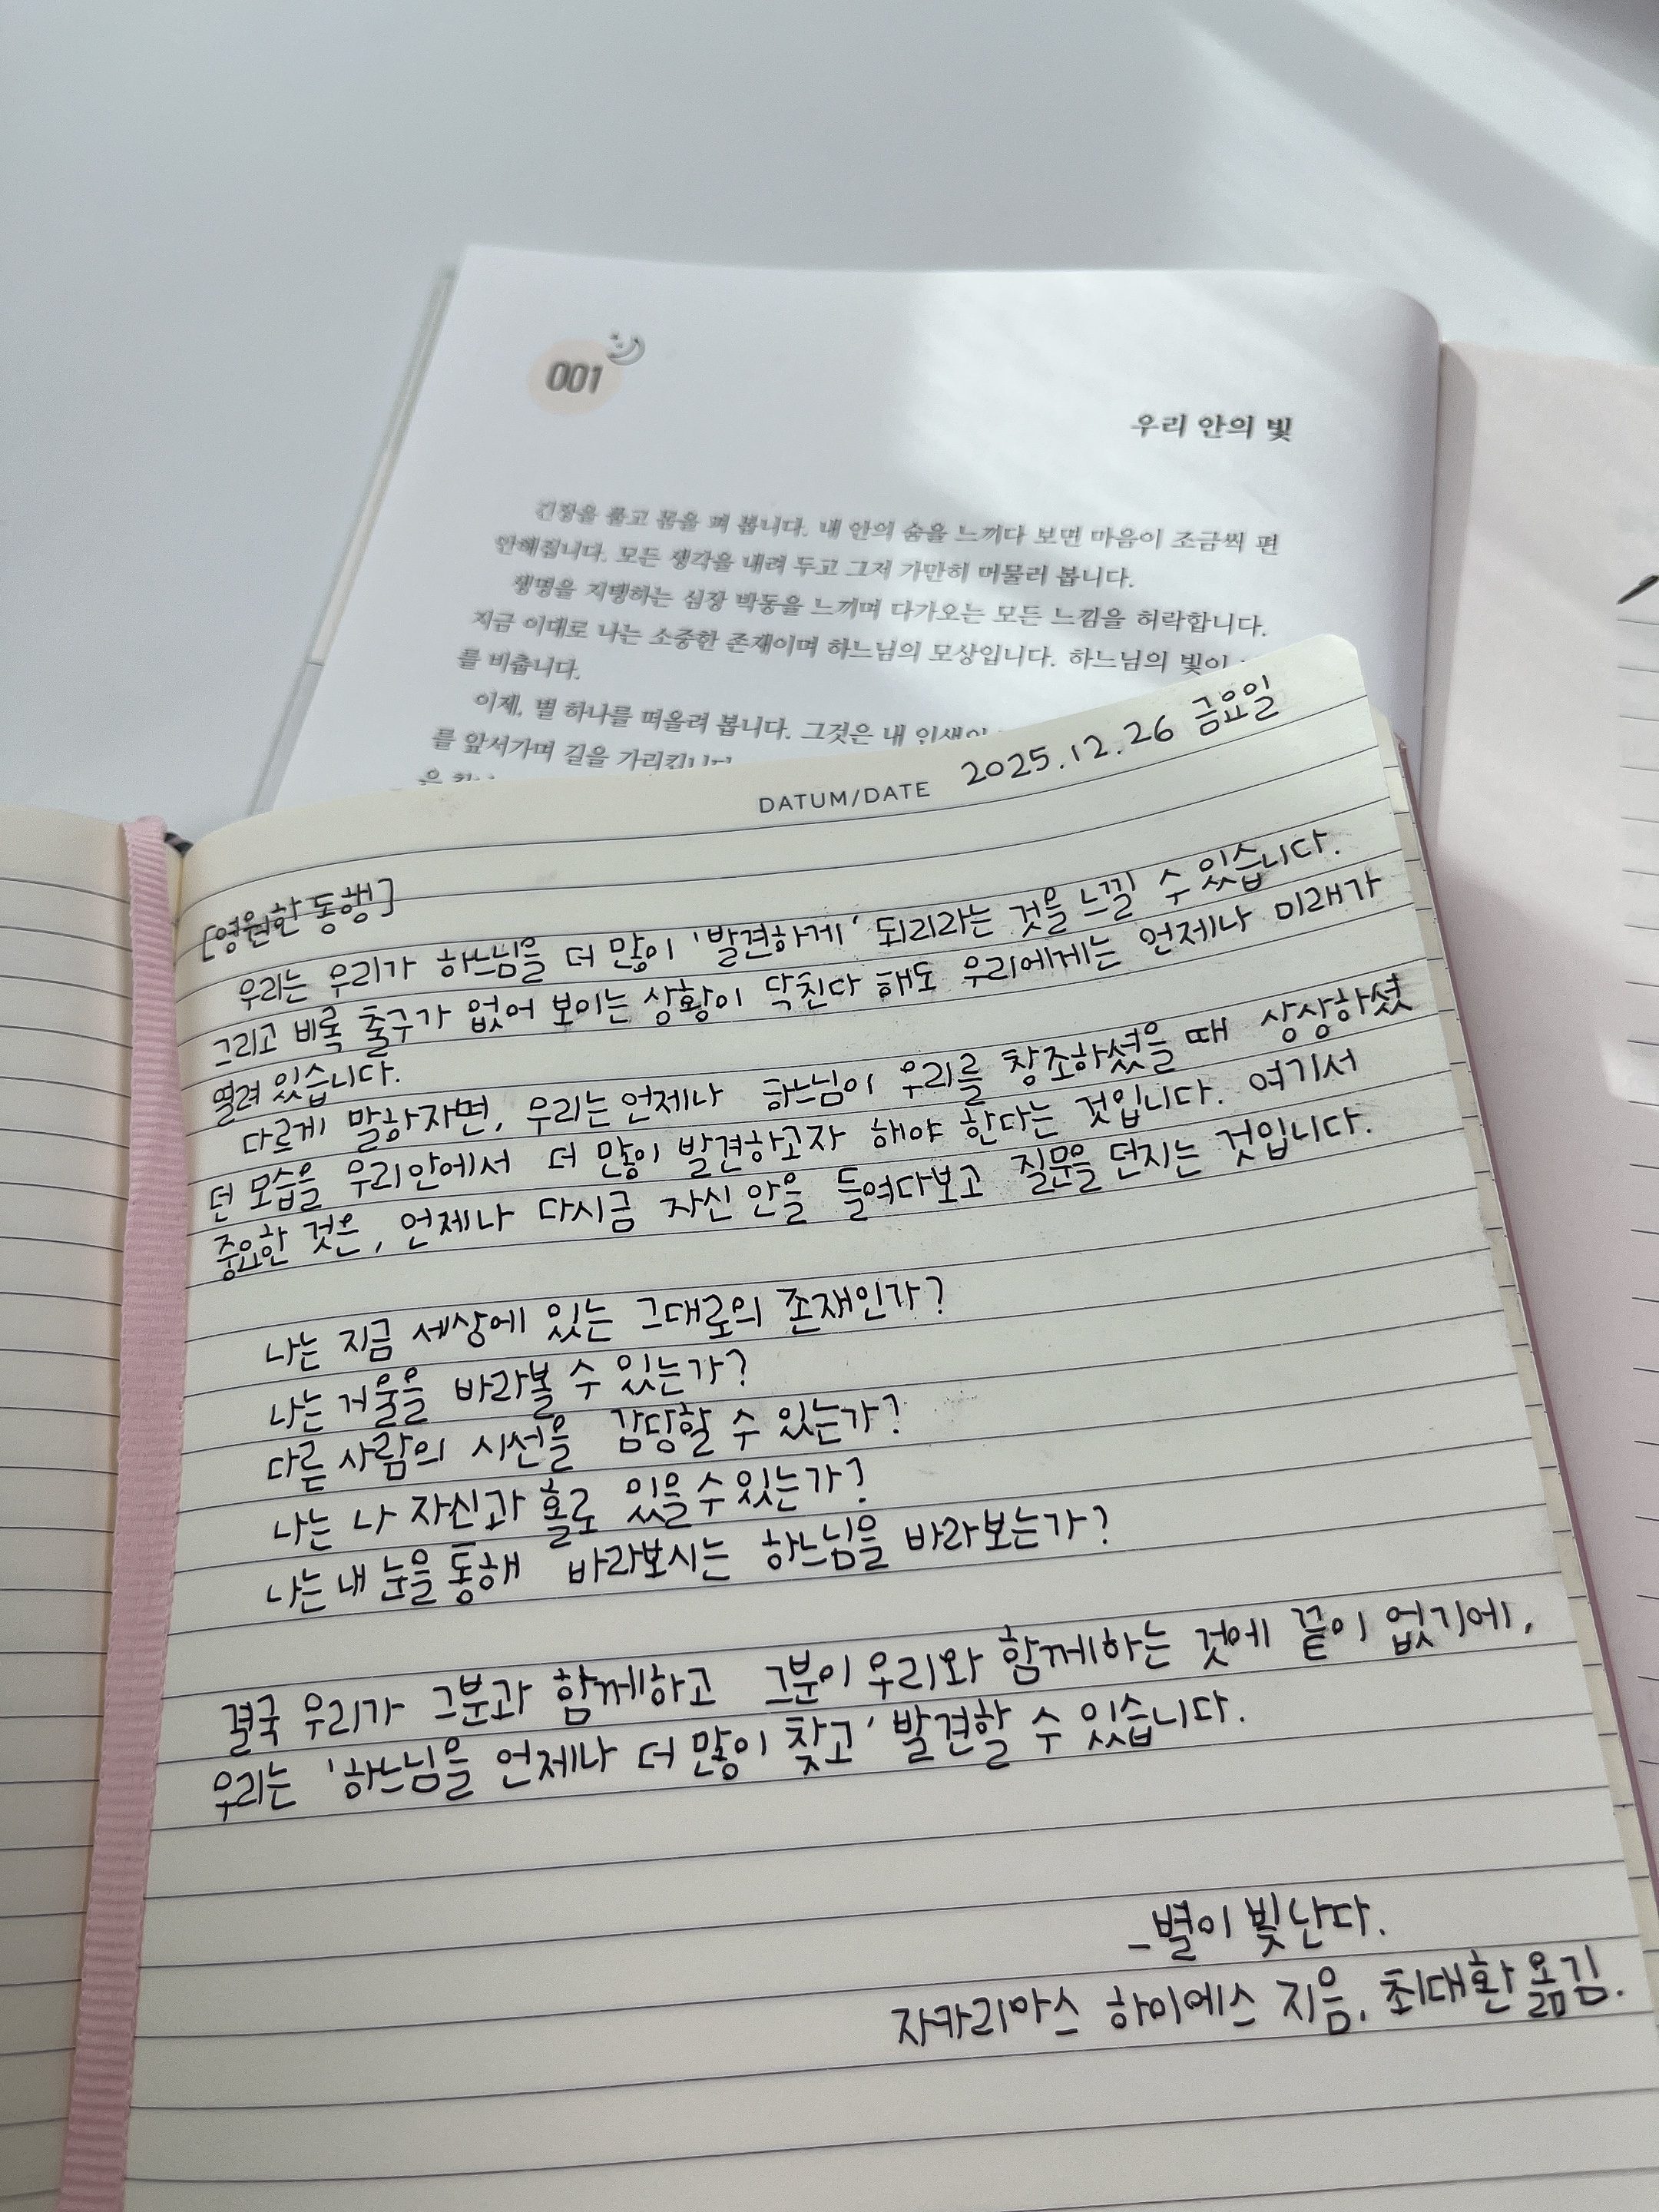 001
우리 안의 빛
긴장을 풀고 몸을 펴 봅니다. 내 안의 숨을 느끼다 보면 마음이 조금씩 편
안해집니다. 모든 생각을 내려 두고 그저 가만히 머물러 봅니다.
생명을 지탱하는 심장 박동을 느끼며 다가오는 모든 느낌을 허락합니다.
지금 이대로 나는 소중한 존재이며 하느님의 모상입니다. 하느님의 빛이
를 비춥니다.
이제, 별 하나를 떠올려 봅니다. 그것은 내 인생의
를 앞서가며 길을 가리킵니다.
DATUM/DATE 2025.12.26 금요일
[영원한 동행]
우리는 우리가 하느님을 더 많이 '발견하게' 되리라는 것을 느낄 수 있습니다.
그리고 비록 출구가 없어 보이는 상황이 닥친다 해도 우리에게는 언제나 미래가
열려 있습니다.
다르게 말하자면, 우리는 언제나 하느님이 우리를 창조하셨을 때 상상하셨
던 모습을 우리 안에서 더 많이 발견하고자 해야 한다는 것입니다. 여기서
중요한 것은, 언제나 다시금 자신 안을 들여다보고 질문을 던지는 것입니다.
나는 지금 세상에 있는 그대로의 존재인가?
나는 거울을 바라볼 수 있는가?
다른 사람의 시선을 감당할 수 있는가?
나는 나 자신과 홀로 있을 수 있는가?
나는 내 눈을 통해 바라보시는 하느님을 바라보는가?
결국 우리가 그분과 함께하고 그분이 우리와 함께하는 것에 끝이 없기에,
우리는 '하느님을 언제나 더 많이 찾고' 발견할 수 있습니다.
-별이 빛난다.
자카리아스 하이에스 지음, 최대환 옮김.